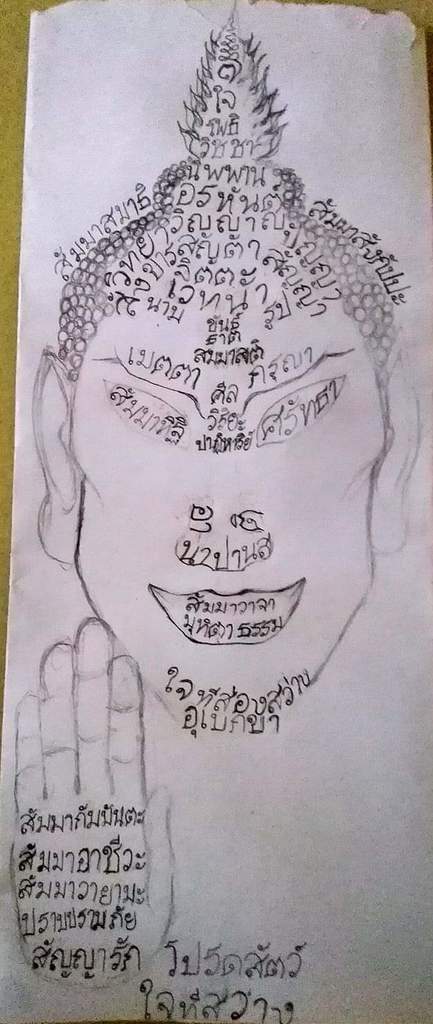 ใจ
โพธิ
วิชชา
นิพพาน
อรหันต์
วิญญาณ
สัมมาสมาธิ
สัมมาสังกัปปะ
ปัญญา
สัญญา
จิตตะ
เวทนา
นาม
รูป
ขันธ์
ธาตุ
สัมมาสติ
เมตตา
กรุณา
ศีล
สัมมาทิฐิ
วิริยะ
ศรัทธา
ปาฏิหาริย์
นาปานส
สัมมาวาจา
มุทิตา ธรรม
ใจที่ส่องสว่าง
อุเบกขา
สัมมากัมมันตะ
สัมมาอาชีวะ
สัมมาวายามะ
ปราบปรามภัย
สัญญารัก โปรดสัตว์
ใจที่สว่าง